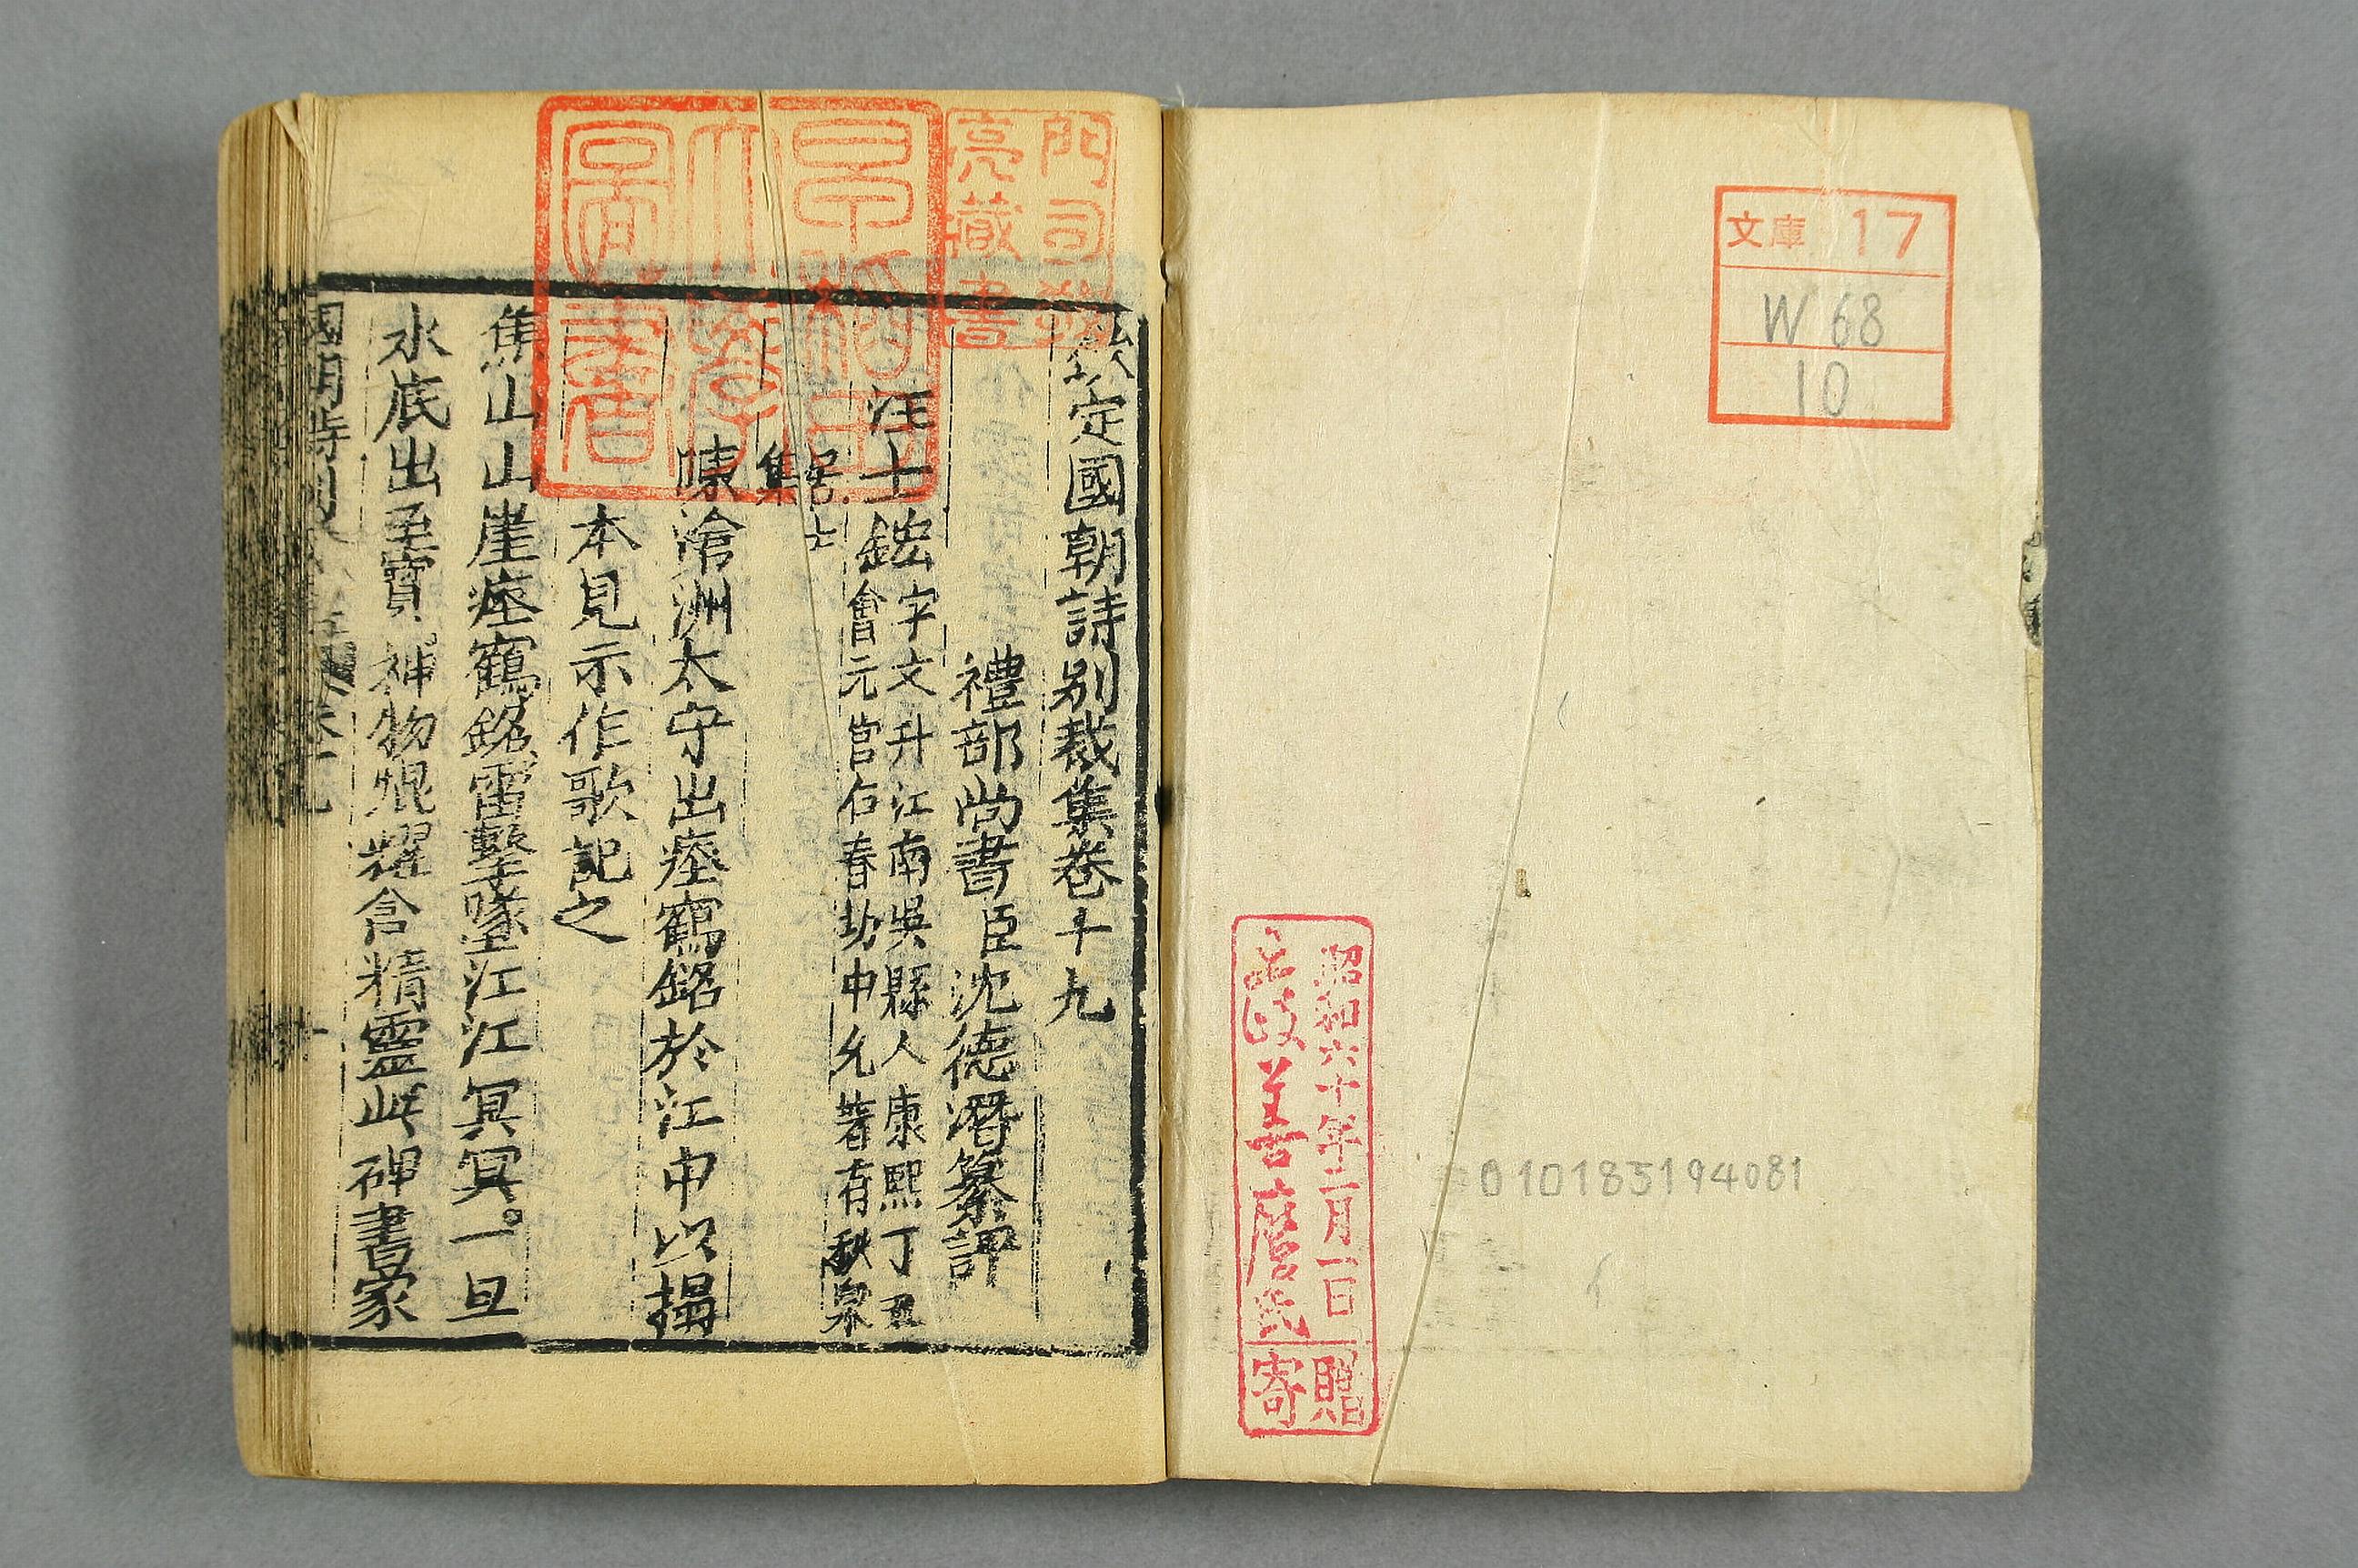 文庫 17
W 68
10
昭和六十年二月一日
麿氏
寄贈
010183194081
早稲田大學圖書
欽定國朝詩別裁集卷十九
禮部尚書臣沈德潛纂評
汪士鋐字文升江南吳縣人康熙丁丑
會元官右春坊中允著有秋泉
居士
集
陳滄洲太守出瘞鶴銘於江中以搨
本見示作歌記之
焦山山崖瘞鶴銘雷擊墜江江冥冥。一旦
水底出至寶神物焜燿含精靈此碑書家